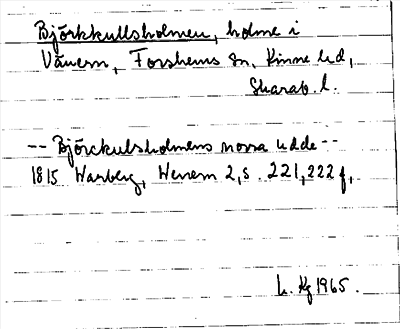 Björkkullsholmen, holme i
Vänern, Forshems sn, Kinne hd,
Skarab. l.
-- Björckulsholmens norra udde --
1815 Warberg, Wenern 2, s. 221, 222 f,
L. Kg 1965.